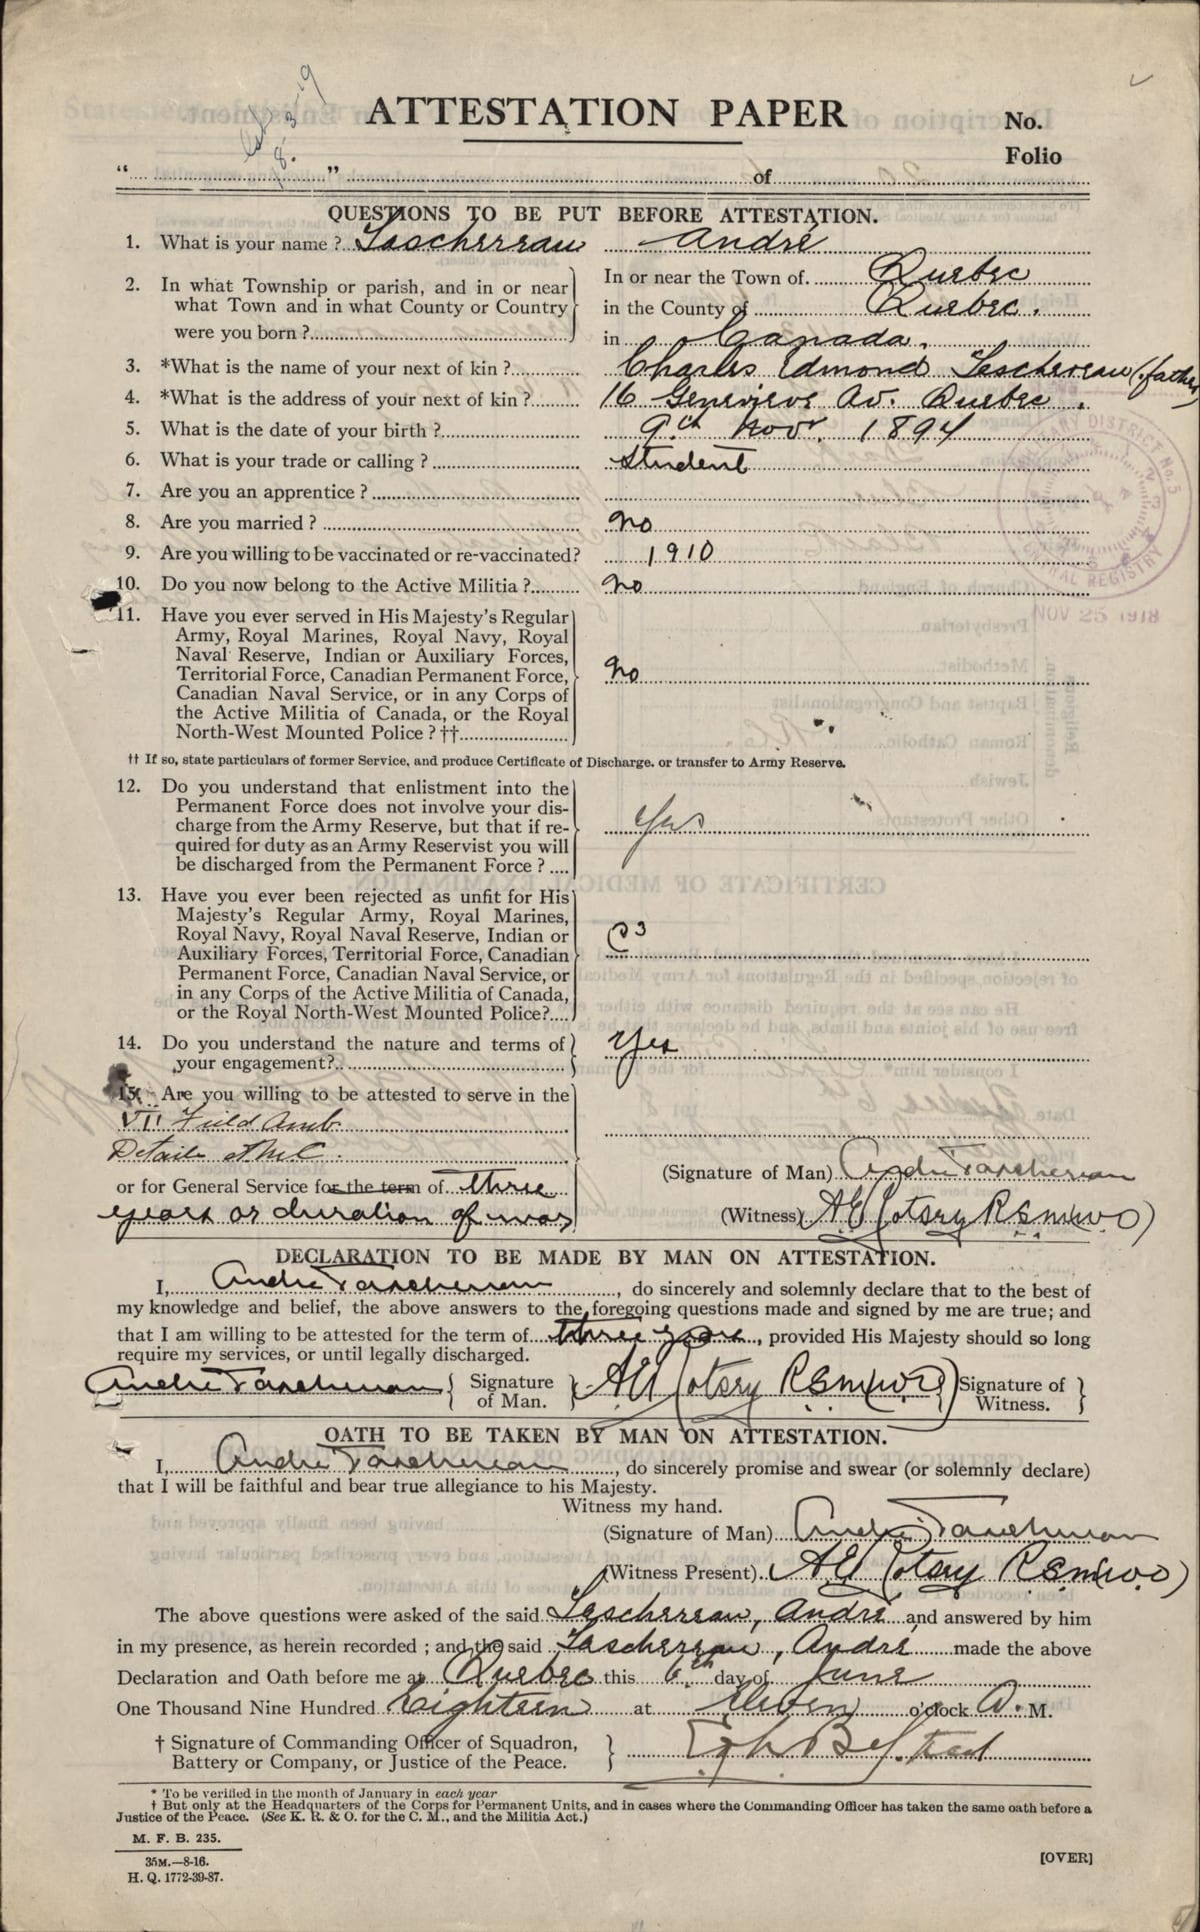 ATTESTATION PAPER
No.
Folio
" " of
QUESTIONS TO BE PUT BEFORE ATTESTATION.
1. What is your name? Taschereau André
2. In what Township or parish, and in or near what Town and in what County or Country were you born?
In or near the Town of Quebec
in the County of Quebec.
in Canada.
3. *What is the name of your next of kin? Charles Edmond Taschereau (father)
4. *What is the address of your next of kin? 16 Genevieve Av. Quebec.
5. What is the date of your birth? 9th Nov. 1894
6. What is your trade or calling? Student
7. Are you an apprentice?
8. Are you married? No
9. Are you willing to be vaccinated or re-vaccinated? 1910
10. Do you now belong to the Active Militia? No
11. Have you ever served in His Majesty's Regular
Army, Royal Marines, Royal Navy, Royal
Naval Reserve, Indian or Auxiliary Forces,
Territorial Force, Canadian Permanent Force,
Canadian Naval Service, or in any Corps of
the Active Militia of Canada, or the Royal
North-West Mounted Police? ††
No
NOV 25 1918
†† If so, state particulars of former Service, and produce Certificate of Discharge. or transfer to Army Reserve.
12. Do you understand that enlistment into the
Permanent Force does not involve your dis-
charge from the Army Reserve, but that if re-
quired for duty as an Army Reservist you will
be discharged from the Permanent Force?
Yes
13. Have you ever been rejected as unfit for His
Majesty's Regular Army, Royal Marines,
Royal Navy, Royal Naval Reserve, Indian or
Auxiliary Forces, Territorial Force, Canadian
Permanent Force, Canadian Naval Service, or
in any Corps of the Active Militia of Canada,
or the Royal North-West Mounted Police?
C3
14. Do you understand the nature and terms of
your engagement?
Yes
15. Are you willing to be attested to serve in the
VII Field Amb.
Details AMC.
or for General Service for the term of three
years or duration of war
(Signature of Man) André Taschereau
(Witness)
DECLARATION TO BE MADE BY MAN ON ATTESTATION.
I, André Taschereau, do sincerely and solemnly declare that to the best of
my knowledge and belief, the above answers to the foregoing questions made and signed by me are true; and
that I am willing to be attested for the term of three years, provided His Majesty should so long
require my services, or until legally discharged.
André Taschereau { Signature of Man. } { Signature of Witness. }
OATH TO BE TAKEN BY MAN ON ATTESTATION.
I, André Taschereau, do sincerely promise and swear (or solemnly declare)
that I will be faithful and bear true allegiance to his Majesty.
Witness my hand.
(Signature of Man) André Taschereau
(Witness Present)
The above questions were asked of the said Taschereau, André and answered by him
in my presence, as herein recorded; and the said Taschereau, André made the above
Declaration and Oath before me at Quebec this 6th day of June
One Thousand Nine Hundred Eighteen at Eleven o'clock A. M.
† Signature of Commanding Officer of Squadron,
Battery or Company, or Justice of the Peace. }
* To be verified in the month of January in each year
† But only at the Headquarters of the Corps for Permanent Units, and in cases where the Commanding Officer has taken the same oath before a
Justice of the Peace. (See K. R. & O. for the C. M., and the Militia Act.)
M. F. B. 235.
35M.—8-16.
H. Q. 1772-39-87.
[OVER]